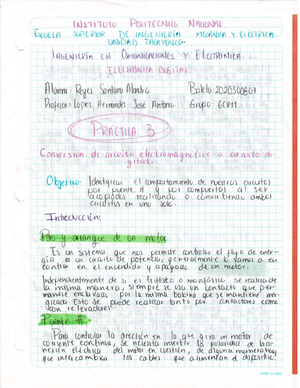 INSTITUTO POLITÉCNICO NACIONAL
ESCUELA SUPERIOR DE INGENIERÍA MECÁNICA Y ELÉCTRICA
UNIDAD ZACATENCO
INGENIERÍA EN COMUNICACIONES Y ELECTRÓNICA
ELECTRÓNICA DIGITAL
Alumno: Reyes Santiago
Boleta: 2020300609
Profesor: López Hernández José Antonio
Grupo: 6CM1
PRÁCTICA 3
Conversión de circuito electromagnético a circuito digital.
Objetivo: Identificar el comportamiento de nuestros circuitos
por puente H y por compuertas al ser
acoplados realizando o convirtiendo ambos
circuitos en uno solo.
Introducción
Paro y arranque de un motor
Es un sistema que nos permite controlar el flujo de energía
a un circuito de potencia, generalmente lo vamos a encontrar
en el encendido y apagado de un motor.
Independientemente de si es trifásico o monofásico se realiza de
la misma manera, siempre se usa un contacto que permanece
enclavado por la misma bobina que se mantiene energizada
Esto se puede realizar tanto por contactores como
con relevadores.
Puente H
Para controlar la dirección en la que gira un motor de
corriente continua, se necesita invertir la polaridad de la conexión
eléctrica del motor en cuestión, de alguna manera hay
que intercambiar los cables que alimentan el dispositivo.